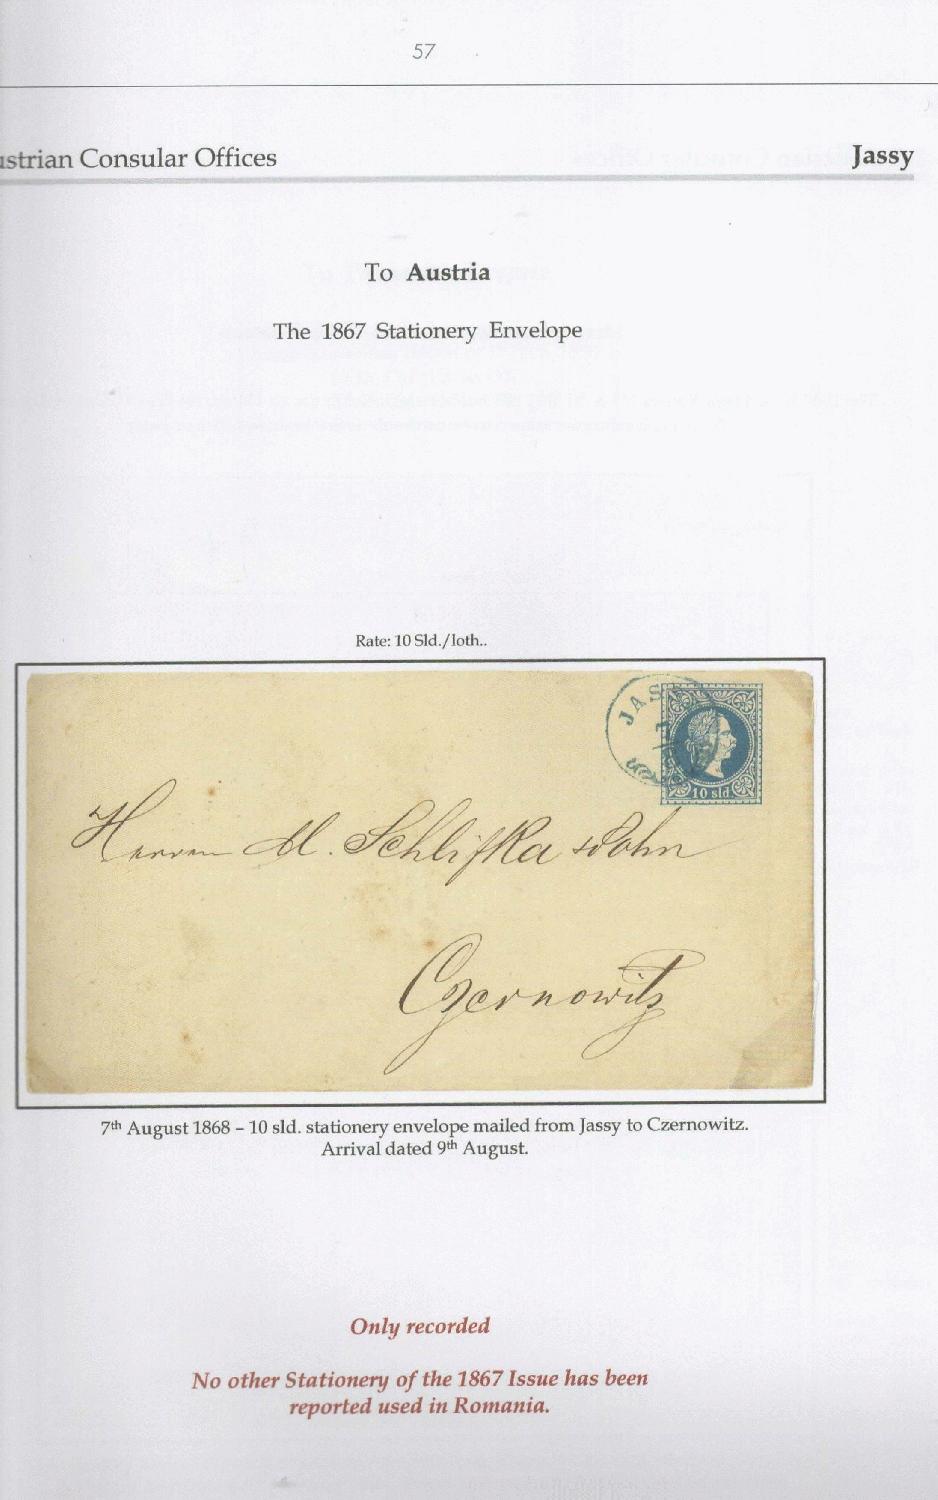 57
strian Consular Offices
Jassy
To Austria
The 1867 Stationery Envelope
Rate: 10 Sld./loth..
JAS
10 sld.
Herren M. Schlifka Sohn
Czernowitz
7th August 1868 – 10 sld. stationery envelope mailed from Jassy to Czernowitz.
Arrival dated 9th August.
Only recorded
No other Stationery of the 1867 Issue has been
reported used in Romania.